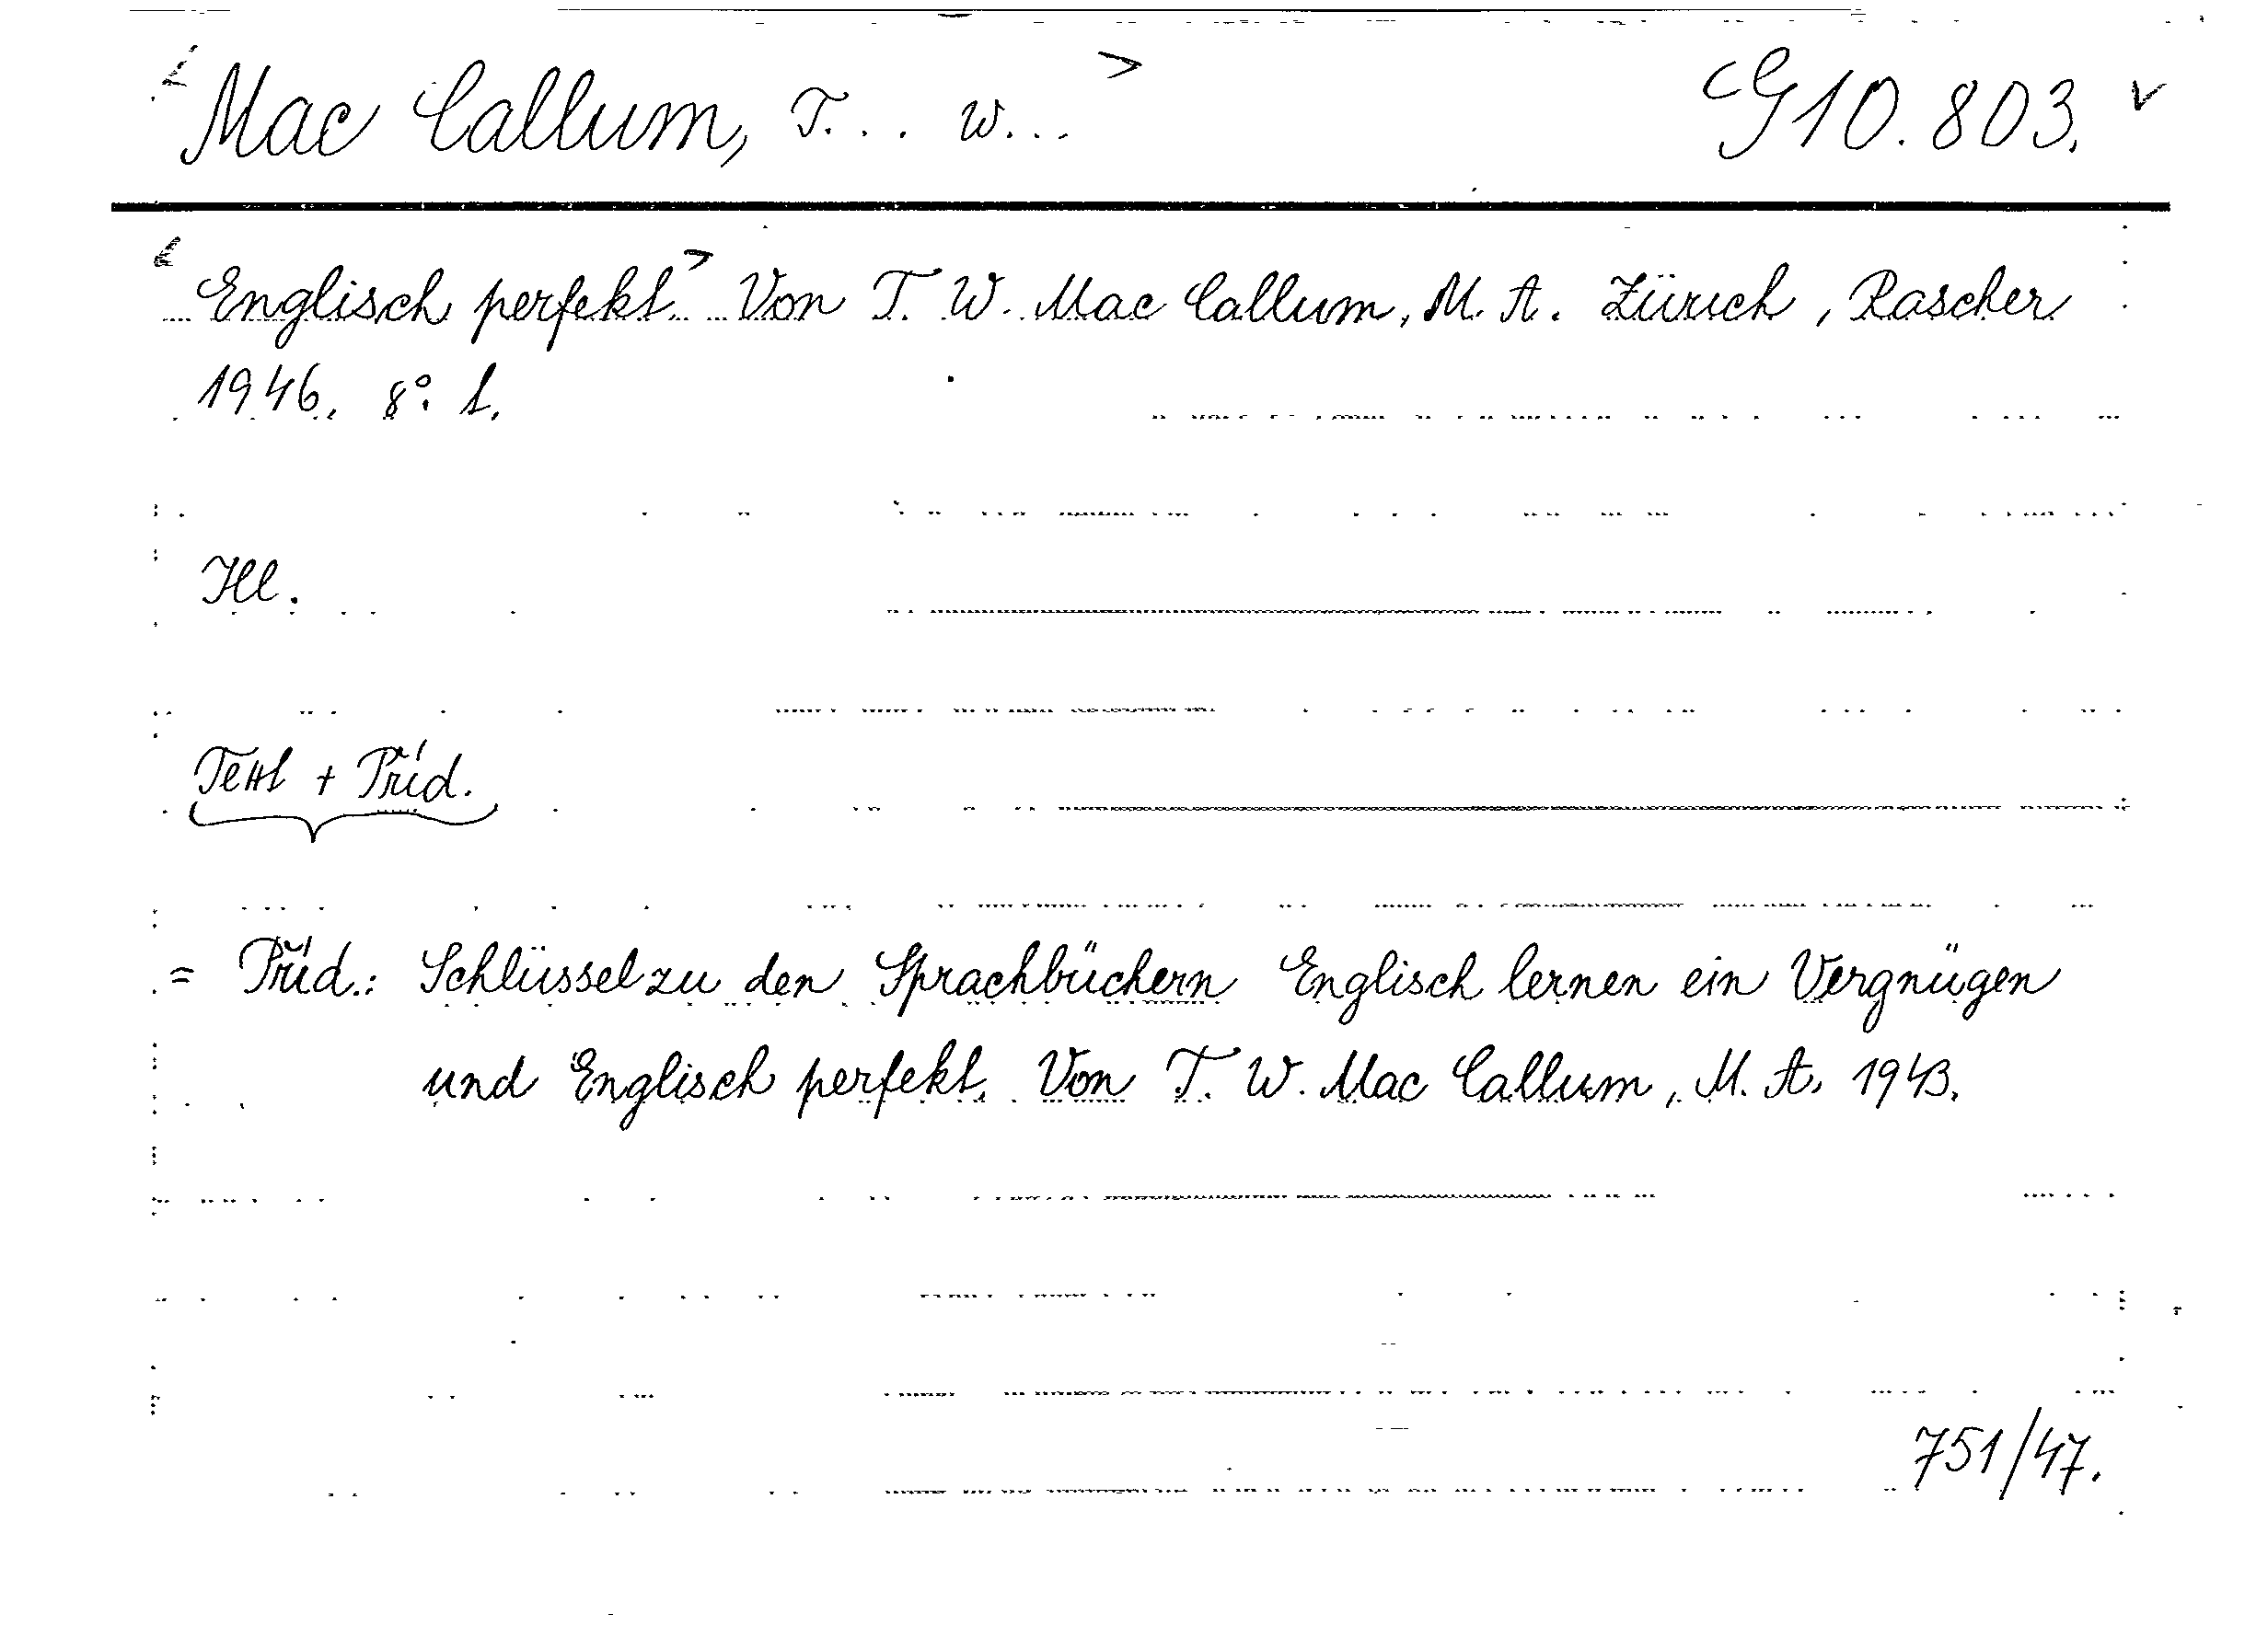 <Mac Callum, T... W...> G 10.803. v
<Englisch perfekt> Von T. W. Mac Callum, M. A. Zürich, Rascher
1946. 8°. l.
Ill.
Text + Příd.
= Příd.: Schlüssel zu den Sprachbüchern Englisch lernen ein Vergnügen
und Englisch perfekt. Von T. W. Mac Callum, M. A. 1943.
751/47.